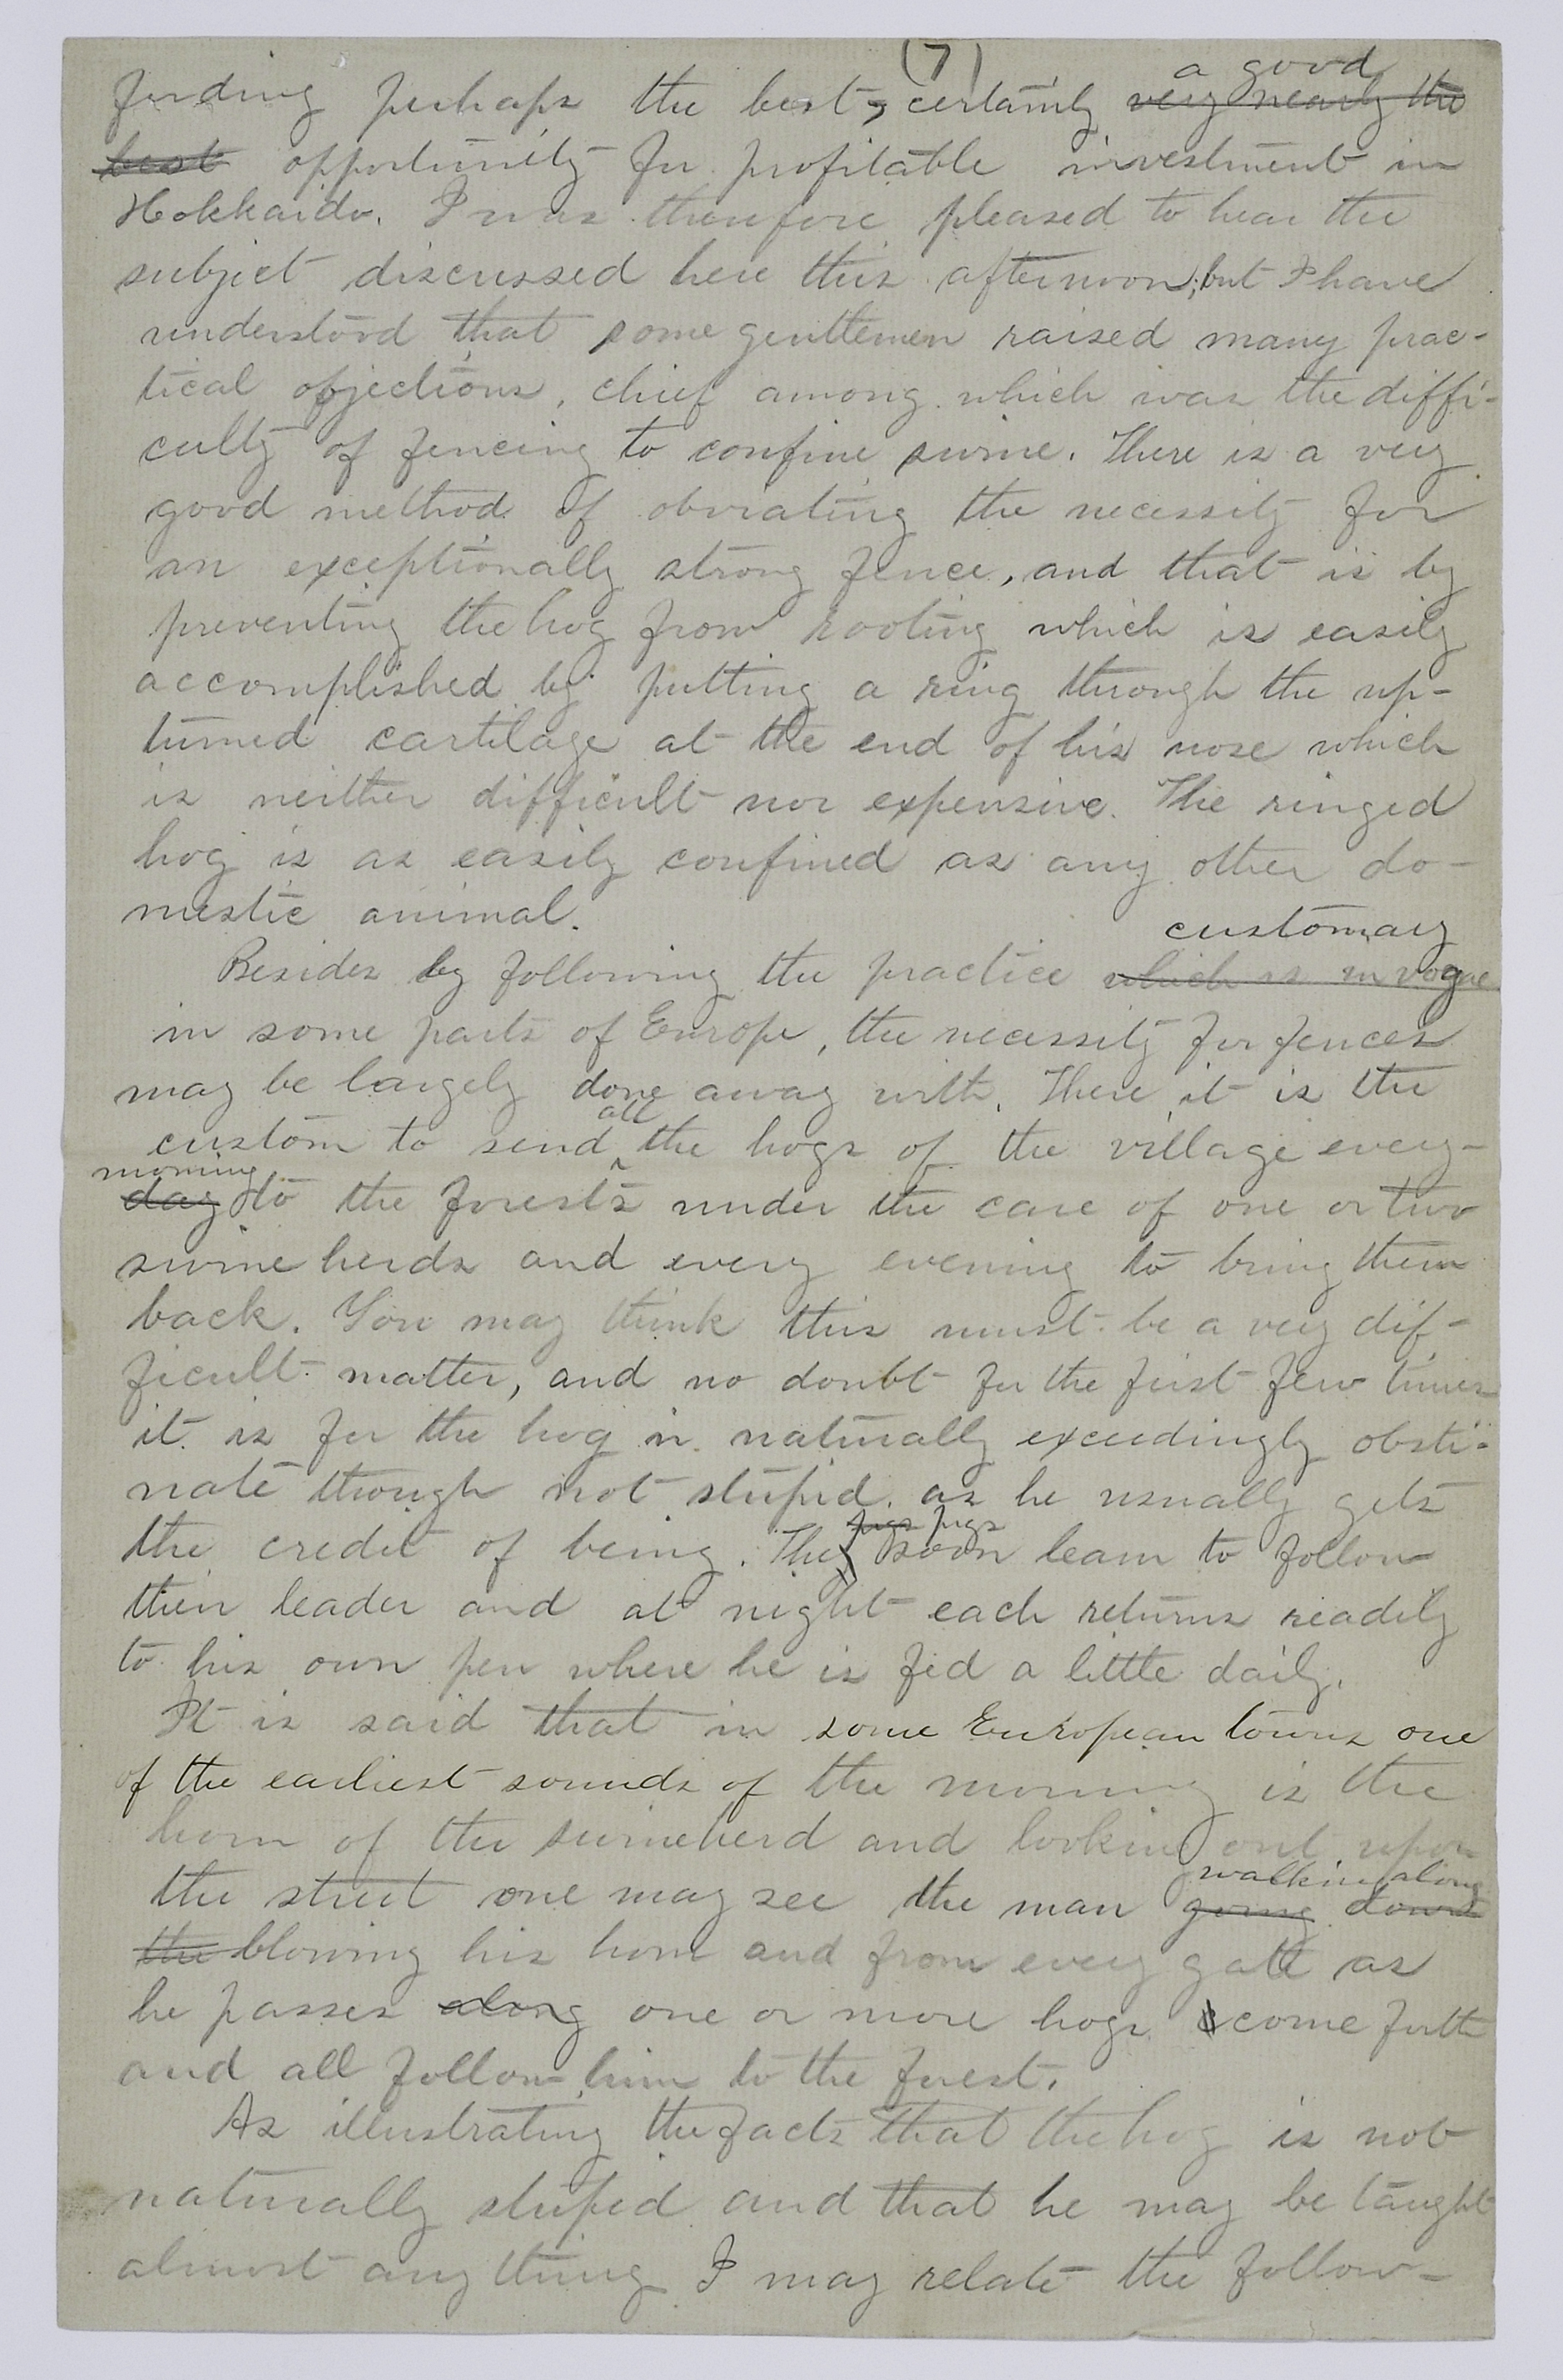 (7)
finding perhaps the best, certainly a good very nearly the
best opportunity for profitable investment in
Hokkaido. I was therefore pleased to hear the
subject discussed here this afternoon; but I have
understood that some gentlemen raised many prac-
tical objections, chief among which was the diffi-
culty of fencing to confine swine. There is a very
good method of obviating the necessity for
an exceptionally strong fence, and that is by
preventing the hog from rooting which is easily
accomplished by putting a ring through the up-
turned cartilage at the end of his nose which
is neither difficult nor expensive. The ringed
hog is as easily confined as any other do-
mestic animal.
Besides by following the practice customary which is in vogue
in some parts of Europe, the necessity for fences
may be largely done away with. There it is the
custom to send all the hogs of the village every-
morning day to the forests under the care of one or two
swine herds and every evening to bring them
back. You may think this must be a very dif-
ficult matter, and no doubt for the first few times
it is for the hog is naturally exceedingly obsti-
nate though not stupid as he usually gets
the credit of being. They pigs pigs soon learn to follow
their leader and at night each returns readily
to his own pen where he is fed a little daily.
It is said that in some European towns one
of the earliest sounds of the morning is the
horn of the swineherd and looking out upon
the street one may see the man walking along going down
the blowing his horn and from every gate as
he passes along one or more hogs come forth
and all follow him to the forest.
As illustrating the facts that the hog is not
naturally stupid and that he may be taught
almost any thing I may relate the follow-